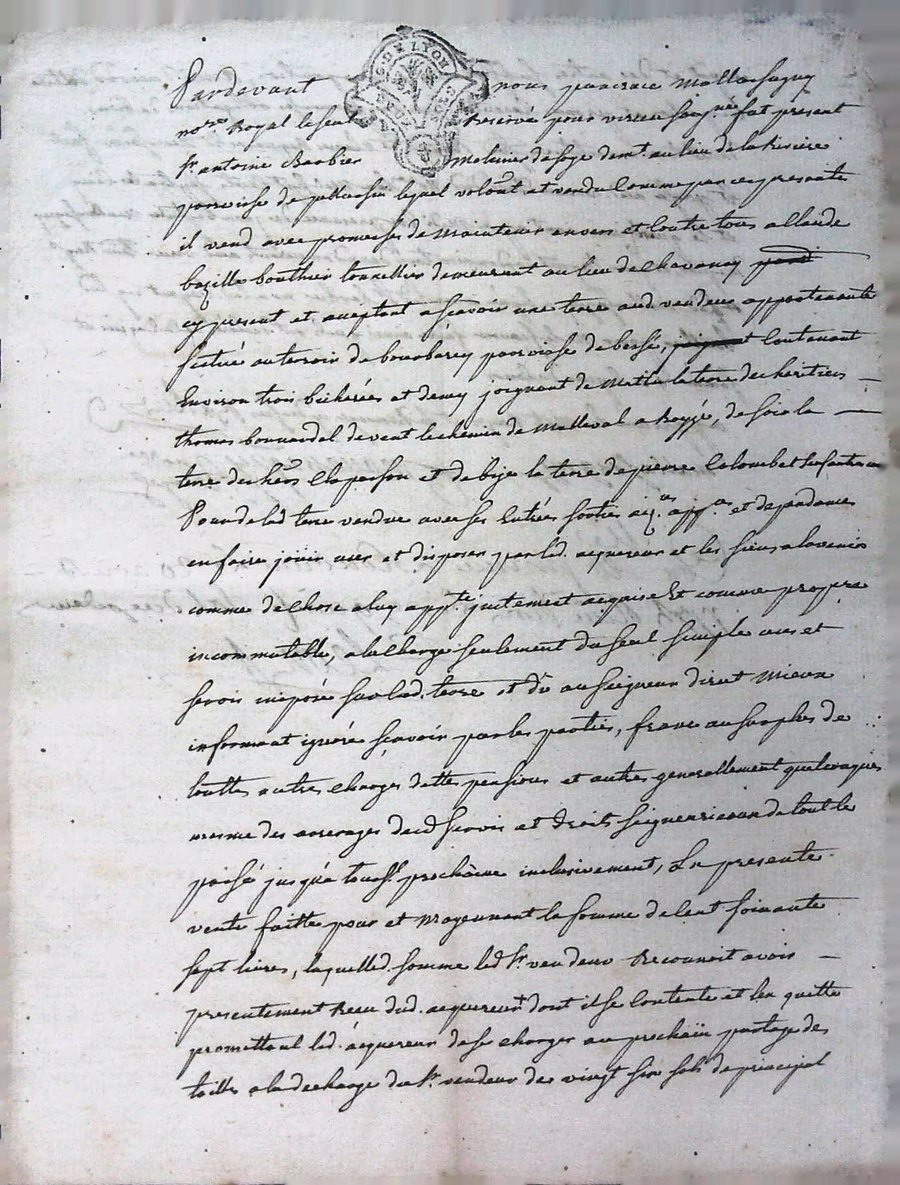 G. DE LYON
Pardevant nous pancrace Mallassagny
no.re Royal le seul Reservé pour virieu soug.né fut present
Sr. antoine Barbier Molinier de soye dem.t au lieu de la Riviere
parroisse de pellussin lequel volon.t at vendu Comme par ces presente
il vend avec promesse de Maintenir envers et Contre tous a Claude
bazille bouthier tonnellier demeurent au lieu de Chavanay
cy present et acceptant a scavoir une terre aud. vendeur appartenante
scitué au terroir de parroisse de besse, Contenant
Environ trois bicherées et demy joignant de Matin la terre des heritiers
thomas bonnardel de vent le chemin de Malleval a Royzé, de soir la
terre des her.s Claparson et de bize la terre de pierre Colombet
Pour de lad. terre vendue avec ses Entrés sorties aiz.es app.ces et dependances
en faire jouir user et disposer par led. acquereur et les siens a lavenir
comme de Chose a luy app.te justement acquise Et comme propre
incommutable, a la Charge seulement du seul simple cens et
servis imposé sur lad. terre et dû au Seigneur direct Mieux
informant ignoré scavoir par les parties, franc au surplus de
touttes autres Charges dettes pensions et autres generallement quelconques
mesme des arrerages dud. servis et droits seigneuriaux de tout le
passé jusqu'a touss.t prochaine inclusivement, La presente
vente faitte pour et Moyennant la somme de Cent soixante
sept livres, laquelle d. somme led. Sr. vendeur Reconnoit avoir
presentement Receu dud. acquereur + dont il se Contente et len quitte
promettant led. acquereur de se Charger au prochain partage des
tailles a la decharge du Sr. vendeur de vingt six sols de principal